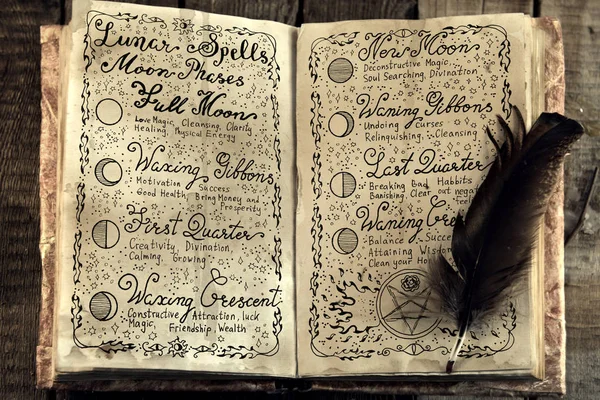 Lunar Spells
Moon Phases
Full Moon
Love Magic, Cleansing, Clarity
Healing, Physical Energy
Waxing Gibbons
Motivation Success
Good Health Bring Money and
Prosperity
First Quarter
Creativity, Divination,
Calming, Growing
Waxing Crescent
Constructive Attraction, luck
Magic, Friendship, Wealth
New Moon
Deconstructive Magic,
Soul Searching, Divination
Waning Gibbons
Undoing curses
Relinquishing, Cleansing
Last Quarter
Breaking Bad Habbits
Banishing, Clear out
Waning
Balance
Attaining
Clean your